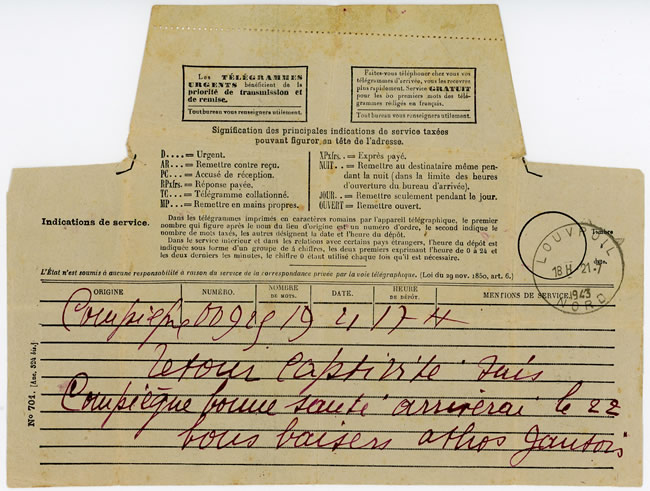 Les TÉLÉGRAMMES
URGENTS bénéficient de la
priorité de transmission et
de remise.
Tout bureau vous renseignera utilement.
Faites-vous téléphoner chez vous vos
télégrammes d'arrivée, vous les recevrez
plus rapidement. Service GRATUIT
pour les 50 premiers mots des télé-
grammes rédigés en français.
Tout bureau vous renseignera utilement.
Signification des principales indications de service taxées
pouvant figurer en tête de l'adresse.
D.... = Urgent.
AR.... = Remettre contre reçu.
PC.... = Accusé de réception.
RPxfrs. = Réponse payée.
TC.... = Télégramme collationné.
MP.... = Remettre en mains propres.
XPxfrs. = Exprès payé.
NUIT.. = Remettre au destinataire même pen-
dant la nuit (dans la limite des heures
d'ouverture du bureau d'arrivée).
JOUR.. = Remettre seulement pendant le jour.
OUVERT = Remettre ouvert.
Indications de service.
Dans les télégrammes imprimés en caractères romains par l'appareil télégraphique, le premier
nombre qui figure après le nom du lieu d'origine est un numéro d'ordre, le second indique le
nombre de mots taxés, les autres désignent la date et l'heure de dépôt.
Dans le service intérieur et dans les relations avec certains pays étrangers, l'heure de dépôt est
indiquée sous forme d'un groupe de 4 chiffres, les deux premiers exprimant l'heure de 0 à 24 et
les deux derniers les minutes, le chiffre 0 étant utilisé chaque fois qu'il est nécessaire.
Timbre
date.
LOUVROIL
18 H 21-7
1943
NORD
L'État n'est soumis à aucune responsabilité à raison du service de la correspondance privée par la voie télégraphique. (Loi du 29 nov. 1850, art. 6.)
ORIGINE NUMÉRO. NOMBRE DE MOTS. DATE. HEURE DE DÉPÔT. MENTIONS DE SERVICE.
Compiègne 00929 19 21 17 H
Retour Captivité suis
Compiègne bonne santé arriverai le 22
bons baisers athos
N° 701.